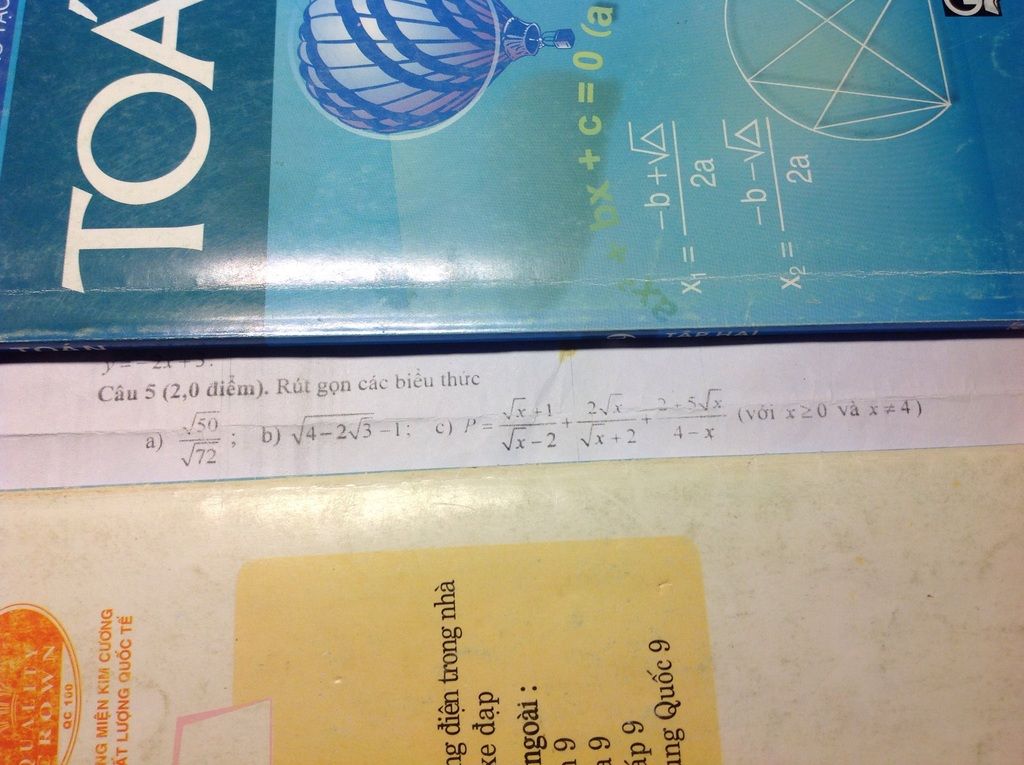 TOÁ
bx + c = 0 (a
x₁ = (-b + √Δ)/2a
x₂ = (-b - √Δ)/2a
TOÁN
TẬP HAI
y = -2x + 3.
Câu 5 (2,0 điểm). Rút gọn các biểu thức
a) √50/√72 ; b) √(4-2√3) -1; c) P = (√x+1)/(√x-2) + 2√x/(√x+2) + (2+5√x)/(4-x) (với x ≥ 0 và x ≠ 4)
QUALITY
CROWN
QC 100
NG MIỆN KIM CƯƠNG
ẤT LƯỢNG QUỐC TẾ
ng điện trong nhà
xe đạp
ngoài :
n 9
a 9
áp 9
ung Quốc 9